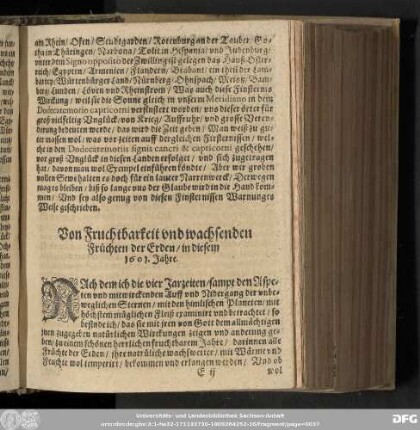 am Rhein / Ofen / Studtgarden / Rotenburg an der Tauber / Go-
tha in Thüringen / Narbona / Tolit in Hispania / vnd Judenburg /
vnter dem Signo opposito der Zwilling ist gelegen das Hauß Öster-
reich / Egypten / Armenien / Flandern / Brabant / ein theil der Lam-
bardy / Würtenberger Land / Nürnberg / Ohnspach / Meintz / Bam-
berg / Lunden / Löven vnd Rheinstrom / Was auch diese Finsternis
Wirckung / weil sie die Sonne gleich in vnserm Meridiano in dem
Dodecatemorio capricorni verfinstert worden / vns dieser örter für
groß vielfeltig Vnglück / von Krieg / Auffruhr / vnd grosse Veren-
derung bedeuten werde / das wird die Zeit geben / Man weiß zu gu-
ter massen wol / was vor zeiten auff dergleichen Finsternissen / wel-
che in den Dodecatemoriis signis cancri & capricorni geschehen /
vor groß Vnglück in diesen Landen erfolget / vnd sich zugetragen
hat / davon man wol Exempel einführen köndte / Aber wir groben
vollen Sew halten es doch für ein lauter Narrenwerck / Derwegen
mag es bleiben / biß so lange vns der Glaube wird in die Hand kom-
men / Vnd sey also genug von diesen Finsternissen Warnungs
Weise geschrieben.
Von Fruchtbarkeit vnd wachsenden
Früchten der Erden / in diesem
1601. Jahre.
NAch dem ich die vier Jarzeiten / sampt den Aspe-
cten vnd mitwirckenden Auff vnd Nidergang der vnbe-
weglichen Sternen / mit den himlischen Planeten / mit
höchstem müglichen Fleiß examinirt vnd betrachtet / so
befinde ich / das sie mit jren von Gott dem allmächtigen
jnen zugegeben natürlichen Wirckungen zeigen vnd andeutung ge-
ben / zu einem schönen herrlichen fruchtbarem Jahre / darinnen alle
Früchte der Erden / ihre natürliche wachsweiter / mit Wärme vnd
Feuchte wol temperirt / bekommen vnd erlangen werden / Vnd ob
E ij
wol
Universitäts- und Landesbibliothek Sachsen-Anhalt